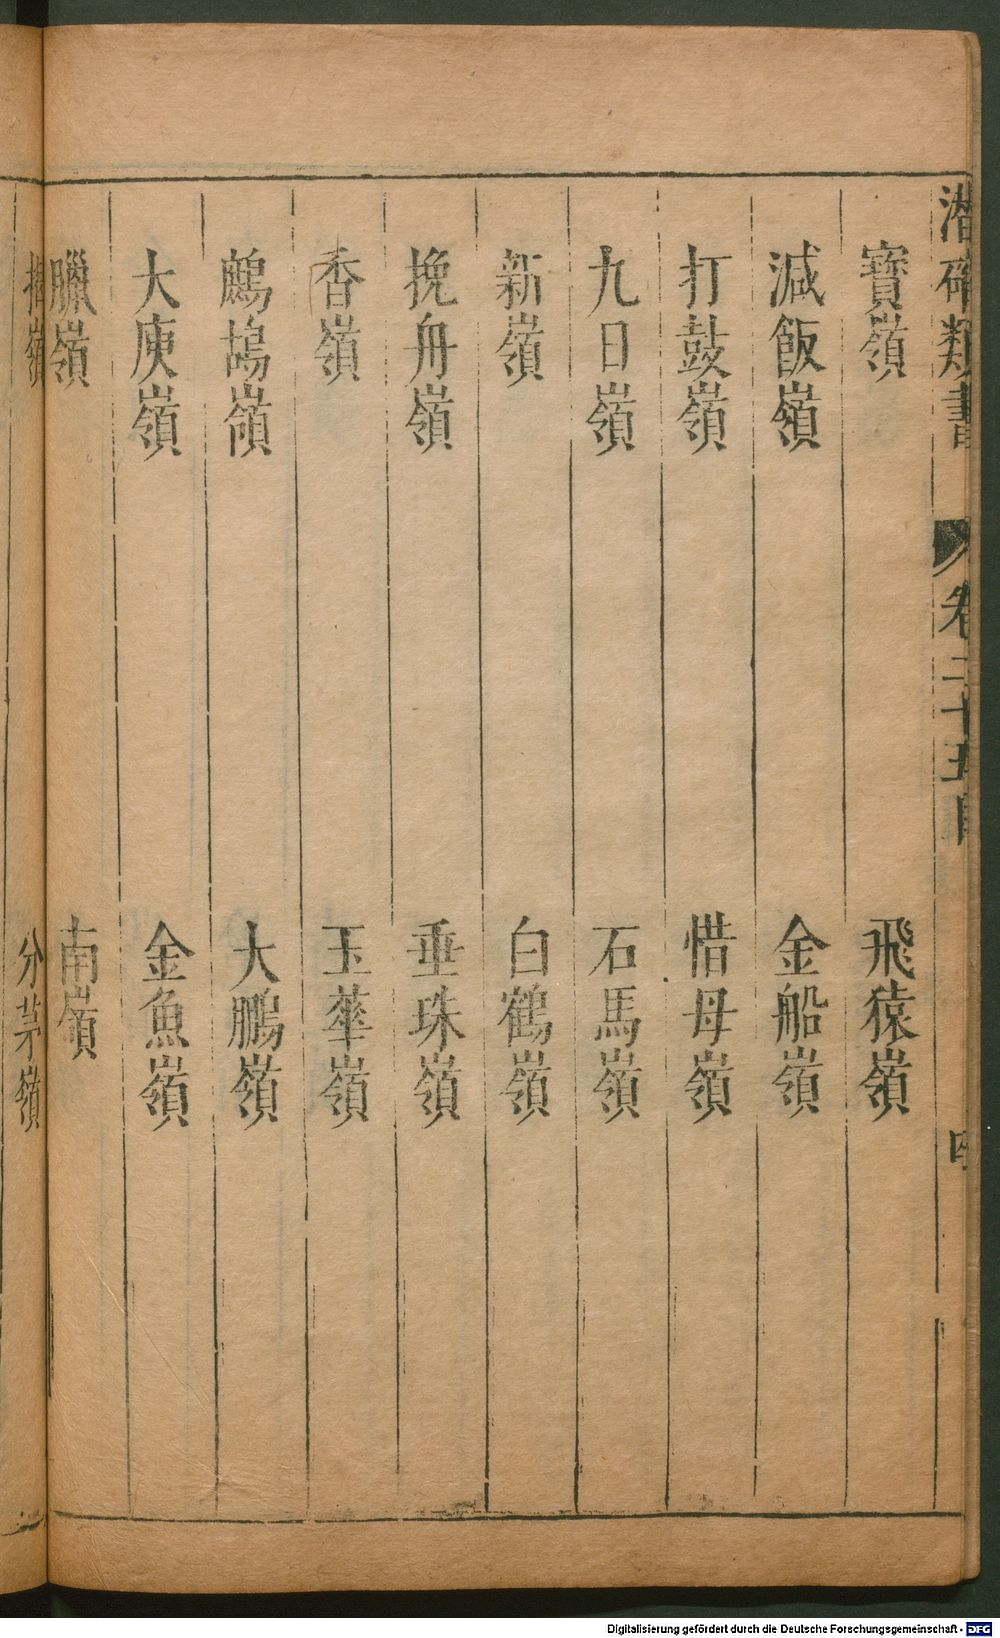 潛確類書 卷二十五目 四
寶嶺 飛猿嶺
減飯嶺 金船嶺
打鼓嶺 惜母嶺
九日嶺 石馬嶺
新嶺 白鶴嶺
挽舟嶺 垂珠嶺
香嶺 玉華嶺
鷓鴣嶺 大鵬嶺
大庾嶺 金魚嶺
臘嶺 南嶺
嶺 分茅嶺
Digitalisierung gefördert durch die Deutsche Forschungsgemeinschaft - DFG